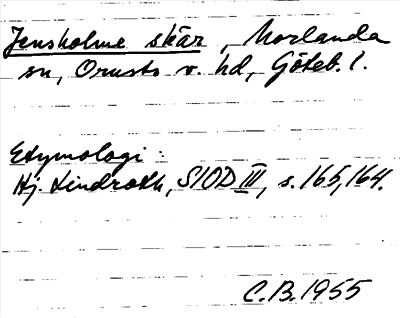 Jensholme skär, Morlanda
sn, Orusts v. hd, Göteb. l.
Etymologi:
Hj. Lindroth, SIOD III, s. 165, 164.
C.B. 1955